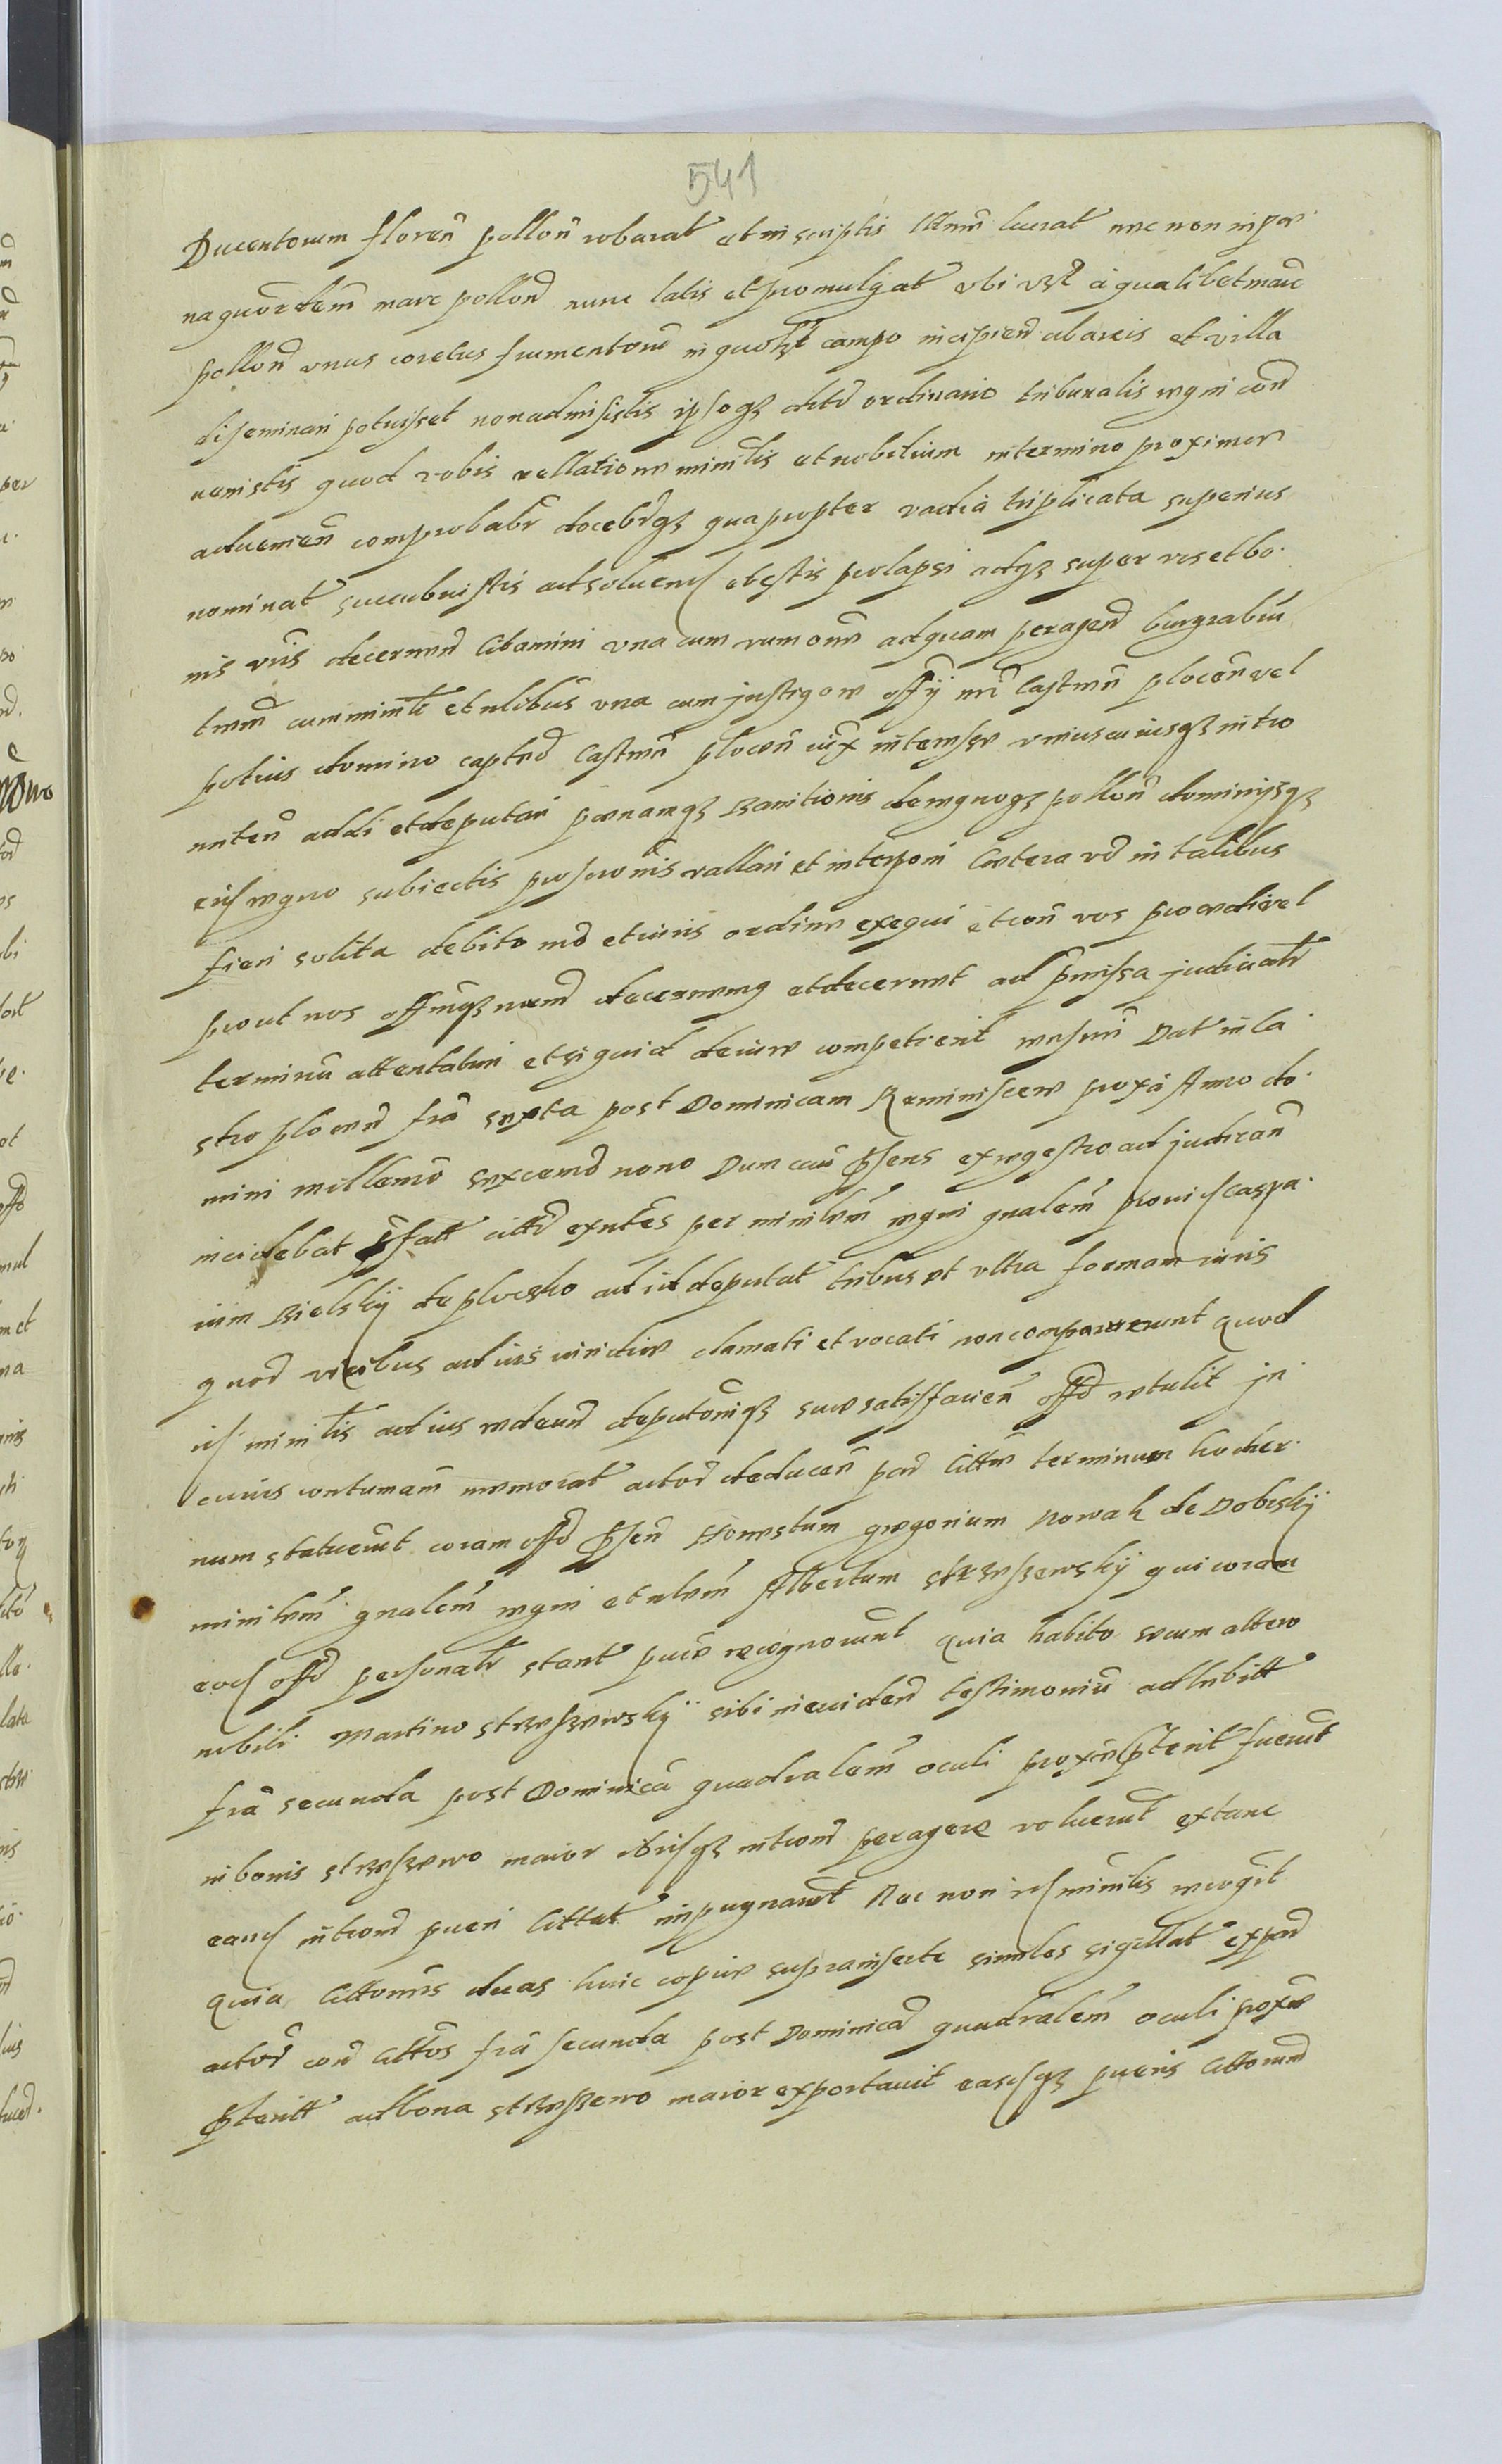 541
Ducentorum floren pollon robarat et in scriptis lucrat nec non in poe
na quordem marc pollond nunc latis et promulgat vbi a qualibet marc
pollond vnus coretus frumentorum in campo incipien ab areis et villa
diseminari potuisset non admisistis ipsoqz decto ordinario tribunalis regni con
uenistis quod vobis rellatione minlis et nobilium in termino proxime
aduenien comprobabr docebrqz quapropter vadia triplicata superius
nominat succubuistis ad soluend estis prolapsi adqz super res et bo
nis vris decernend Citamini vna cum rumone ad quam peragend burgrabium
cum minli et nlibus vna cum justigore offy nri Castren plocen vel
potius domino captneo Castren plocen iux intersse vniuscuiusqz intro
miten addi et deputari poenamqz Banitionis de regnoqz pollon dominysqz
eius regno subiectis vallari et interponi Caetera vo in talibus
fieri solita debito mo et iuris ordine exequi et con vos procedi vel
prout nos offinqz decernemq et decernet ad premissa judicialr
terminu attentaturi et si quid de iure competierit responsuri Dat in Ca
stro plocen fria sexta post Dominicam Reminiscere proxa Anno do
mini millemo sexcento nono Dum causa presens ex regestro ad judican
incidebat prefatt citti exntes per minlem regni gnalem prouid Caspa
rum Bielskij de plocsko ad id deputat tribus et vltra formam iuris
quod vicibus ad ius iuridice clamati et vocati non comparuerunt quod
id minlis ad ius redeund deputonisqz suae satisfacien offo retulit In
quorum contumam memorat actores deducen par Citte terminum hodier
num statuerunt coram offo presen Honestum gregorium Nowak de Dobrskij
minlem gnalem regni et nlem Albertum strzeszewskij qui coram
eod offo personalr stant puce recognouerunt Quia habito secum altero
nobili Martino strzeszewskij sibi in euiden testimoniu adhibitt
fria secunda post Dominica quadralem oculi prox preterit fuerunt
in bonis strzeszewo maior ibidqz introm peragere voluerunt ex tunc
eand introm pueri Cittat inpugnarunt Nec non id minlis recogt
Quia Cittones duas huic copiae suprainserte similes sigillat ex par
actor con Cittos fria secunda post Dominica quadralem oculi proxe
preteritt ad bona strzeszewo maior exportauit easdqz pueris Cittorum